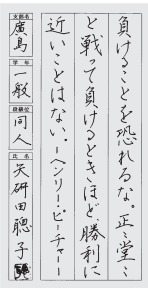 負けることを恐れるな。正々堂々
と戦って負けるときほど、勝利に
近いことはない。ーヘンリー・ビーチャーー
支部名
廣島
学年
一般
段級位
同人
氏名
矢研田聰子